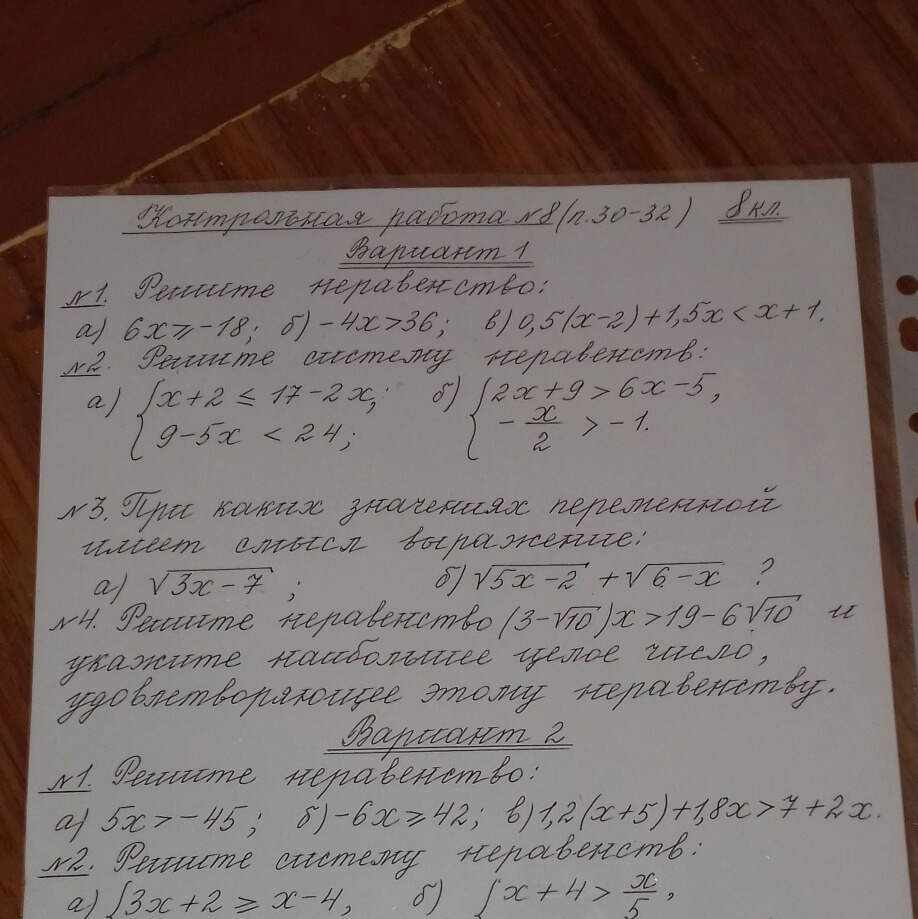 Контрольная работа №8 (п.30-32) 8кл.
Вариант 1
№1. Решите неравенство:
а) 6x ⩾ -18; б) -4x > 36; в) 0,5(x-2)+1,5x < x+1.
№2. Решите систему неравенств:
а) { x+2 ≤ 17-2x; б) { 2x+9 > 6x-5,
9-5x < 24; -x/2 > -1.
№3. При каких значениях переменной
имеет смысл выражение:
а) √(3x-7) ; б) √(5x-2) + √(6-x) ?
№4. Решите неравенство (3-√10)x > 19-6√10 и
укажите наибольшее целое число,
удовлетворяющее этому неравенству.
Вариант 2
№1. Решите неравенство:
а) 5x > -45; б) -6x ⩾ 42; в) 1,2(x+5)+1,8x > 7+2x.
№2. Решите систему неравенств:
а) { 3x+2 ⩾ x-4, б) { x+4 > x/5,